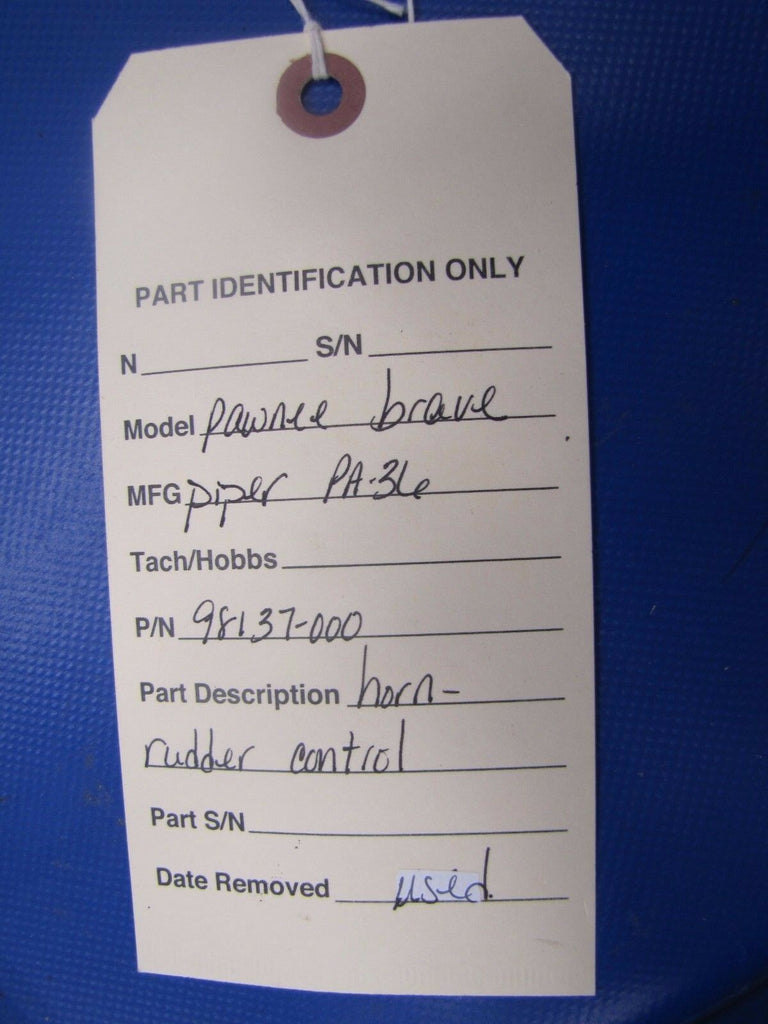 PART IDENTIFICATION ONLY
N S/N
Model pawnee brave
MFG piper PA-36
Tach/Hobbs
P/N 98137-000
Part Description horn-
rudder control
Part S/N
Date Removed used